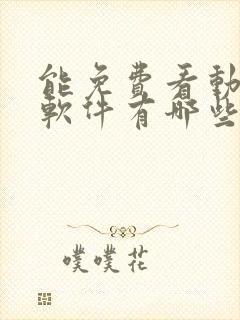 能免費看動
軟件有哪些
噗噗花